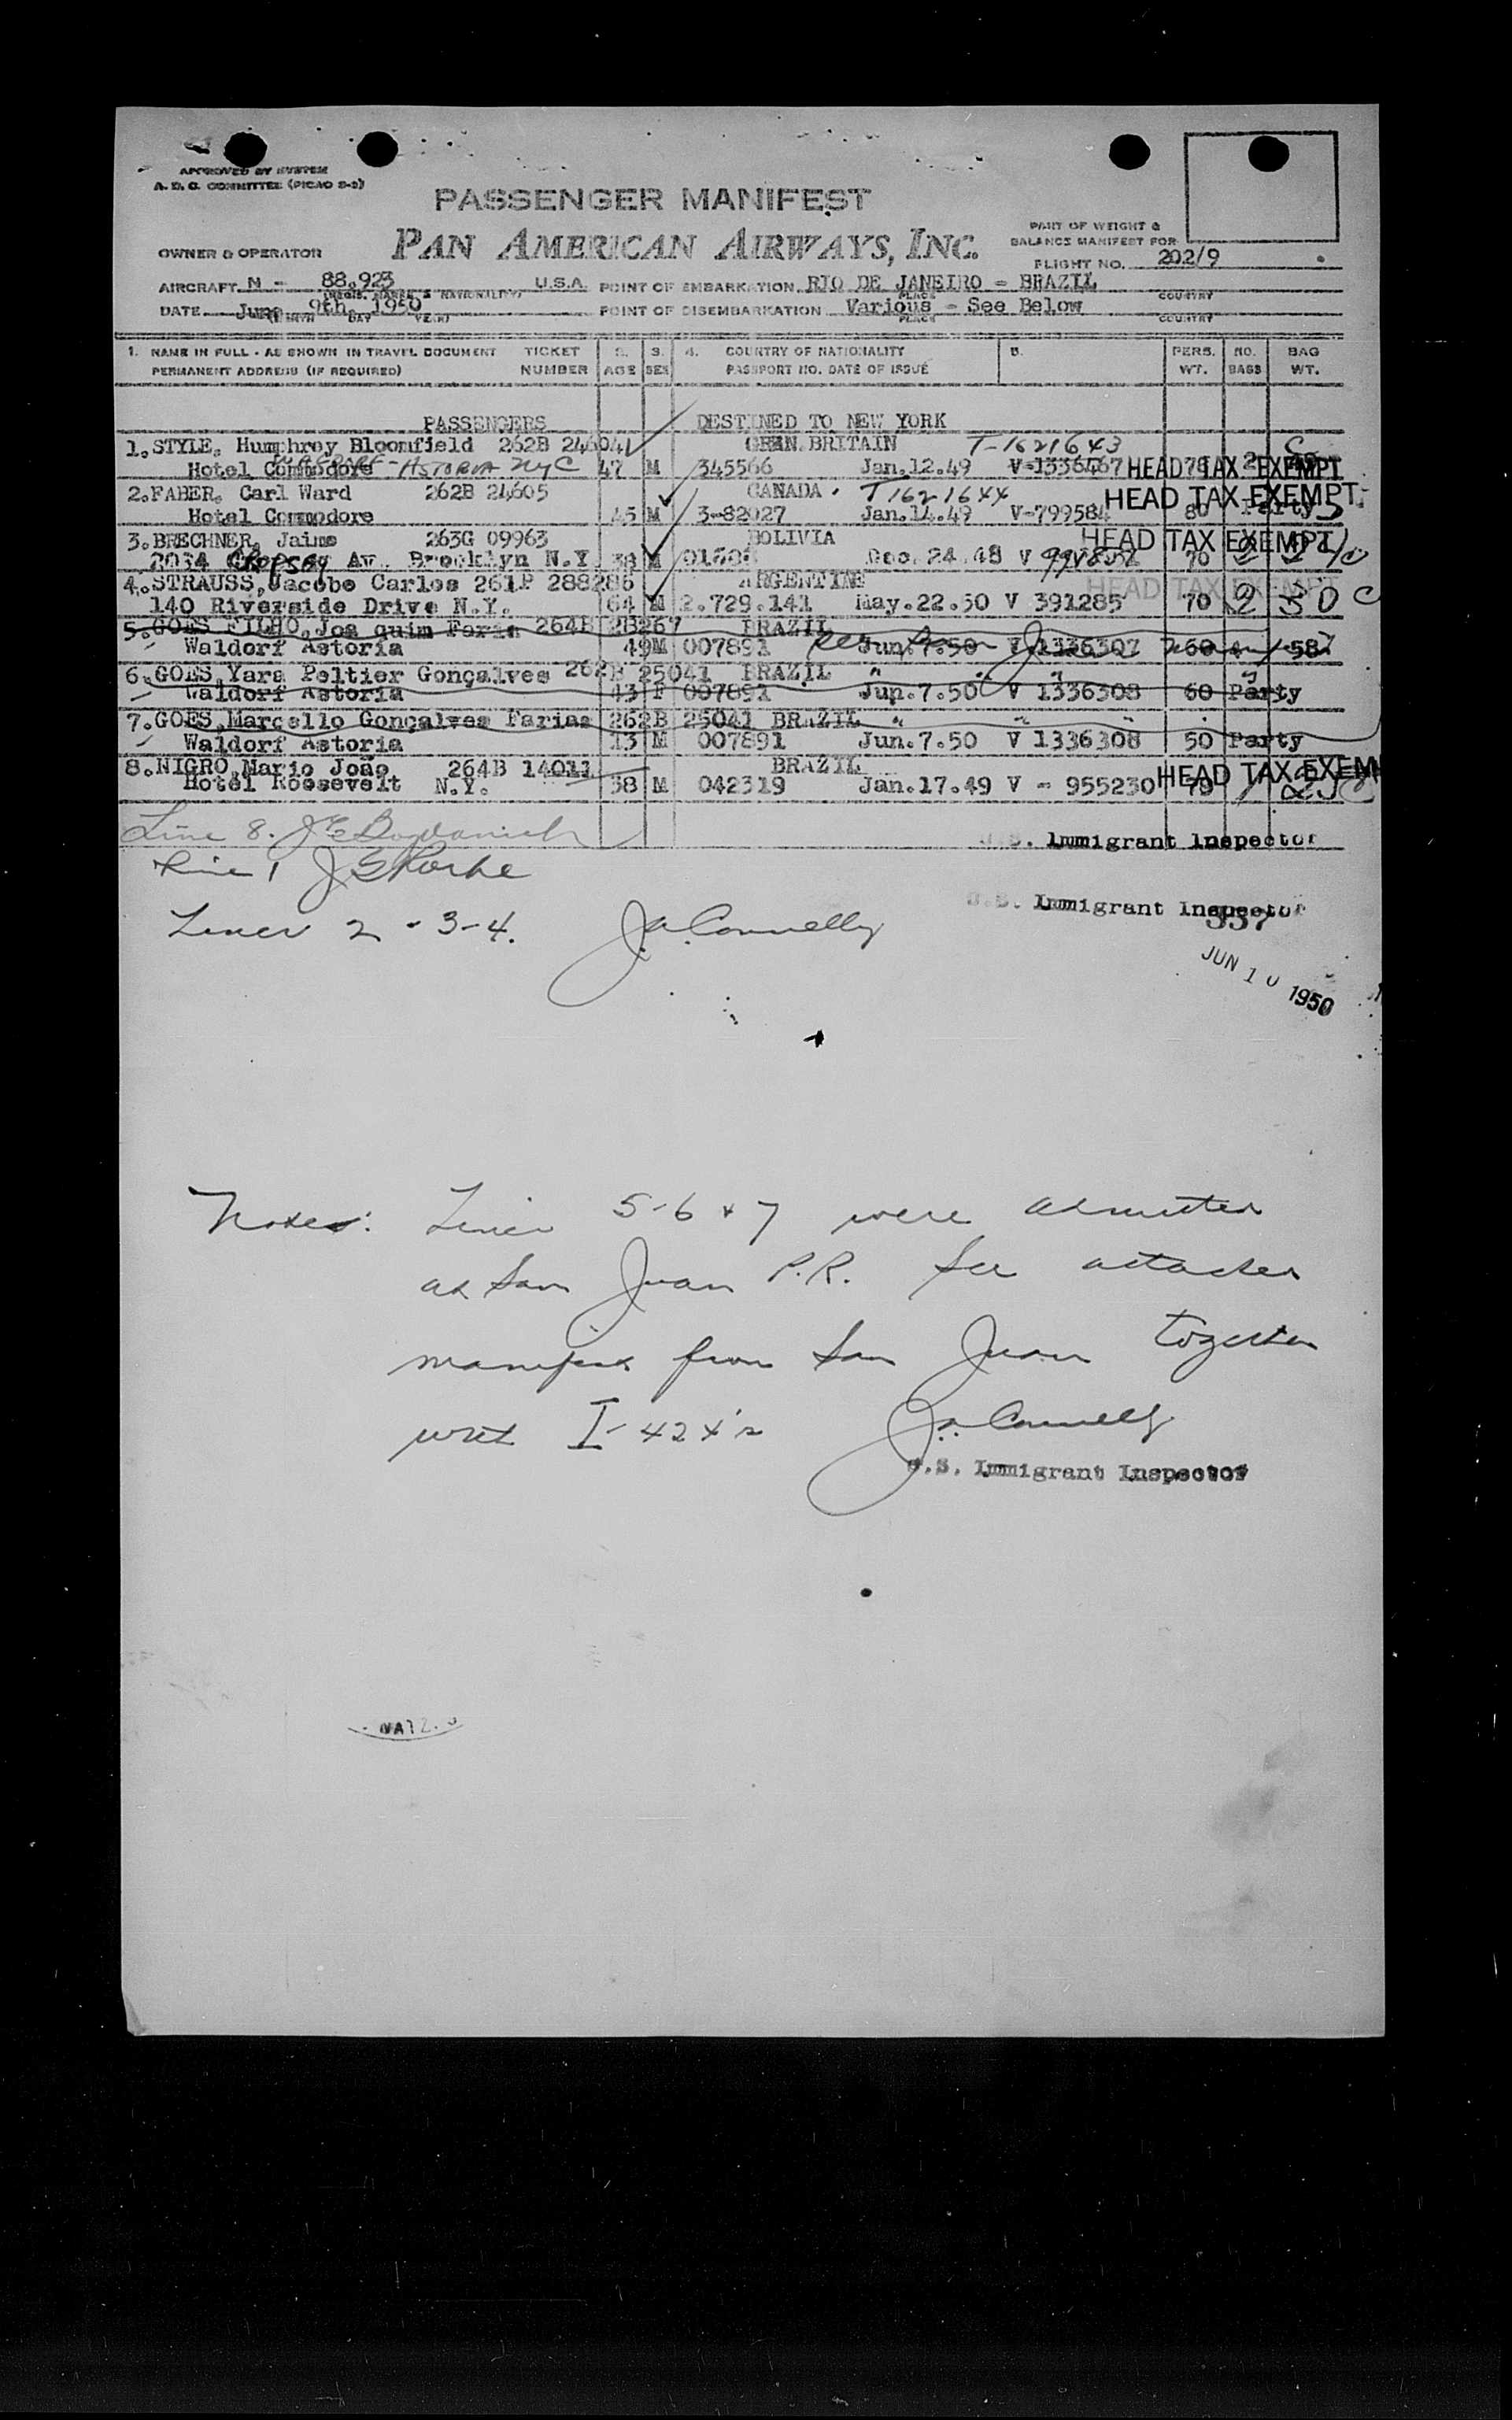 APPROVED BY SYSTEM
A. D. C. COMMITTEE (PICAO 2-2)
PASSENGER MANIFEST
PAN AMERICAN AIRWAYS, INC.
OWNER & OPERATOR
PART OF WEIGHT &
BALANCE MANIFEST FOR
FLIGHT NO. 202/9
AIRCRAFT N - 88.923 U.S.A. POINT OF EMBARKATION RIO DE JANEIRO - BRAZIL
PLACE COUNTRY
DATE June 9th, 1950 POINT OF DISEMBARKATION Various - See Below
MONTH DAY YEAR PLACE COUNTRY
1. NAME IN FULL - AS SHOWN IN TRAVEL DOCUMENT TICKET 2. 3. 4. COUNTRY OF NATIONALITY 5. PERS. NO. BAG
PERMANENT ADDRESS (IF REQUIRED) NUMBER AGE SEX PASSPORT NO. DATE OF ISSUE WT. BAGS WT.
PASSENGERS DESTINED TO NEW YORK
1. STYLE, Humphrey Bloomfield 262B 24604 BRITAIN T-1621643
Hotel Commodore WALDORF-ASTORIA NYC 47 M 345566 Jan.12.49 V-1336467 HEAD TAX EXEMPT 78 2
2. FABER, Carl Ward 262B 24605 CANADA. T1621644 HEAD TAX EXEMPT
Hotel Commodore 45 M 3-82027 Jan.14.49 V-799584 80 Party
3. BRECHNER, Jaime 263G 09963 BOLIVIA HEAD TAX EXEMPT
2034 CROPSEY Av. Brooklyn N.Y 38 M Dec.24.48 V 70
4. STRAUSS, Jacobo Carlos 261P 288286 ARGENTINE HEAD TAX EXEMPT
140 Riverside Drive N.Y. 64 M 2.729.141 May.22.50 V 391285 70 2 50 C
5. GOES FILHO, Joa quim Faria 264B 28267 BRAZIL
Waldorf Astoria 49 M 007891 Jun.7.50 V 1336307 60 58
6. GOES, Yara Peltier Gonçalves 262B 25041 BRAZIL " " "
Waldorf Astoria 43 F 007891 Jun.7.50 V 1336308 60 Party
7. GOES, Marcello Gonçalves Farias 262B 25041 BRAZIL " " "
Waldorf Astoria 13 M 007891 Jun.7.50 V 1336308 50 Party
8. NIGRO, Mario João 264B 14011 BRAZIL HEAD TAX EXEM
Hotel Roosevelt N.Y. 38 M 042319 Jan.17.49 V - 955230 79
Line 8.
U.S. Immigrant Inspector
Line 1
U.S. Immigrant Inspector
337
Lines 2-3-4. J.A. Connelly
JUN 10 1950
Notes: Lines 5-6 & 7 were admitted
at San Juan P.R. See attached
manifest from San Juan together
with I-424's J.A. Connelly
U.S. Immigrant Inspector